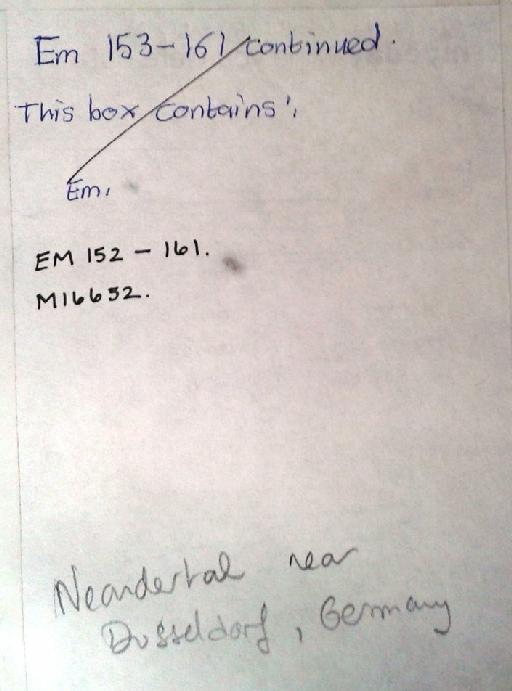 Em 153-161 continued.
This box contains:
Em.
EM 152 - 161.
M16652.
Neandertal near
Dusseldorf, Germany